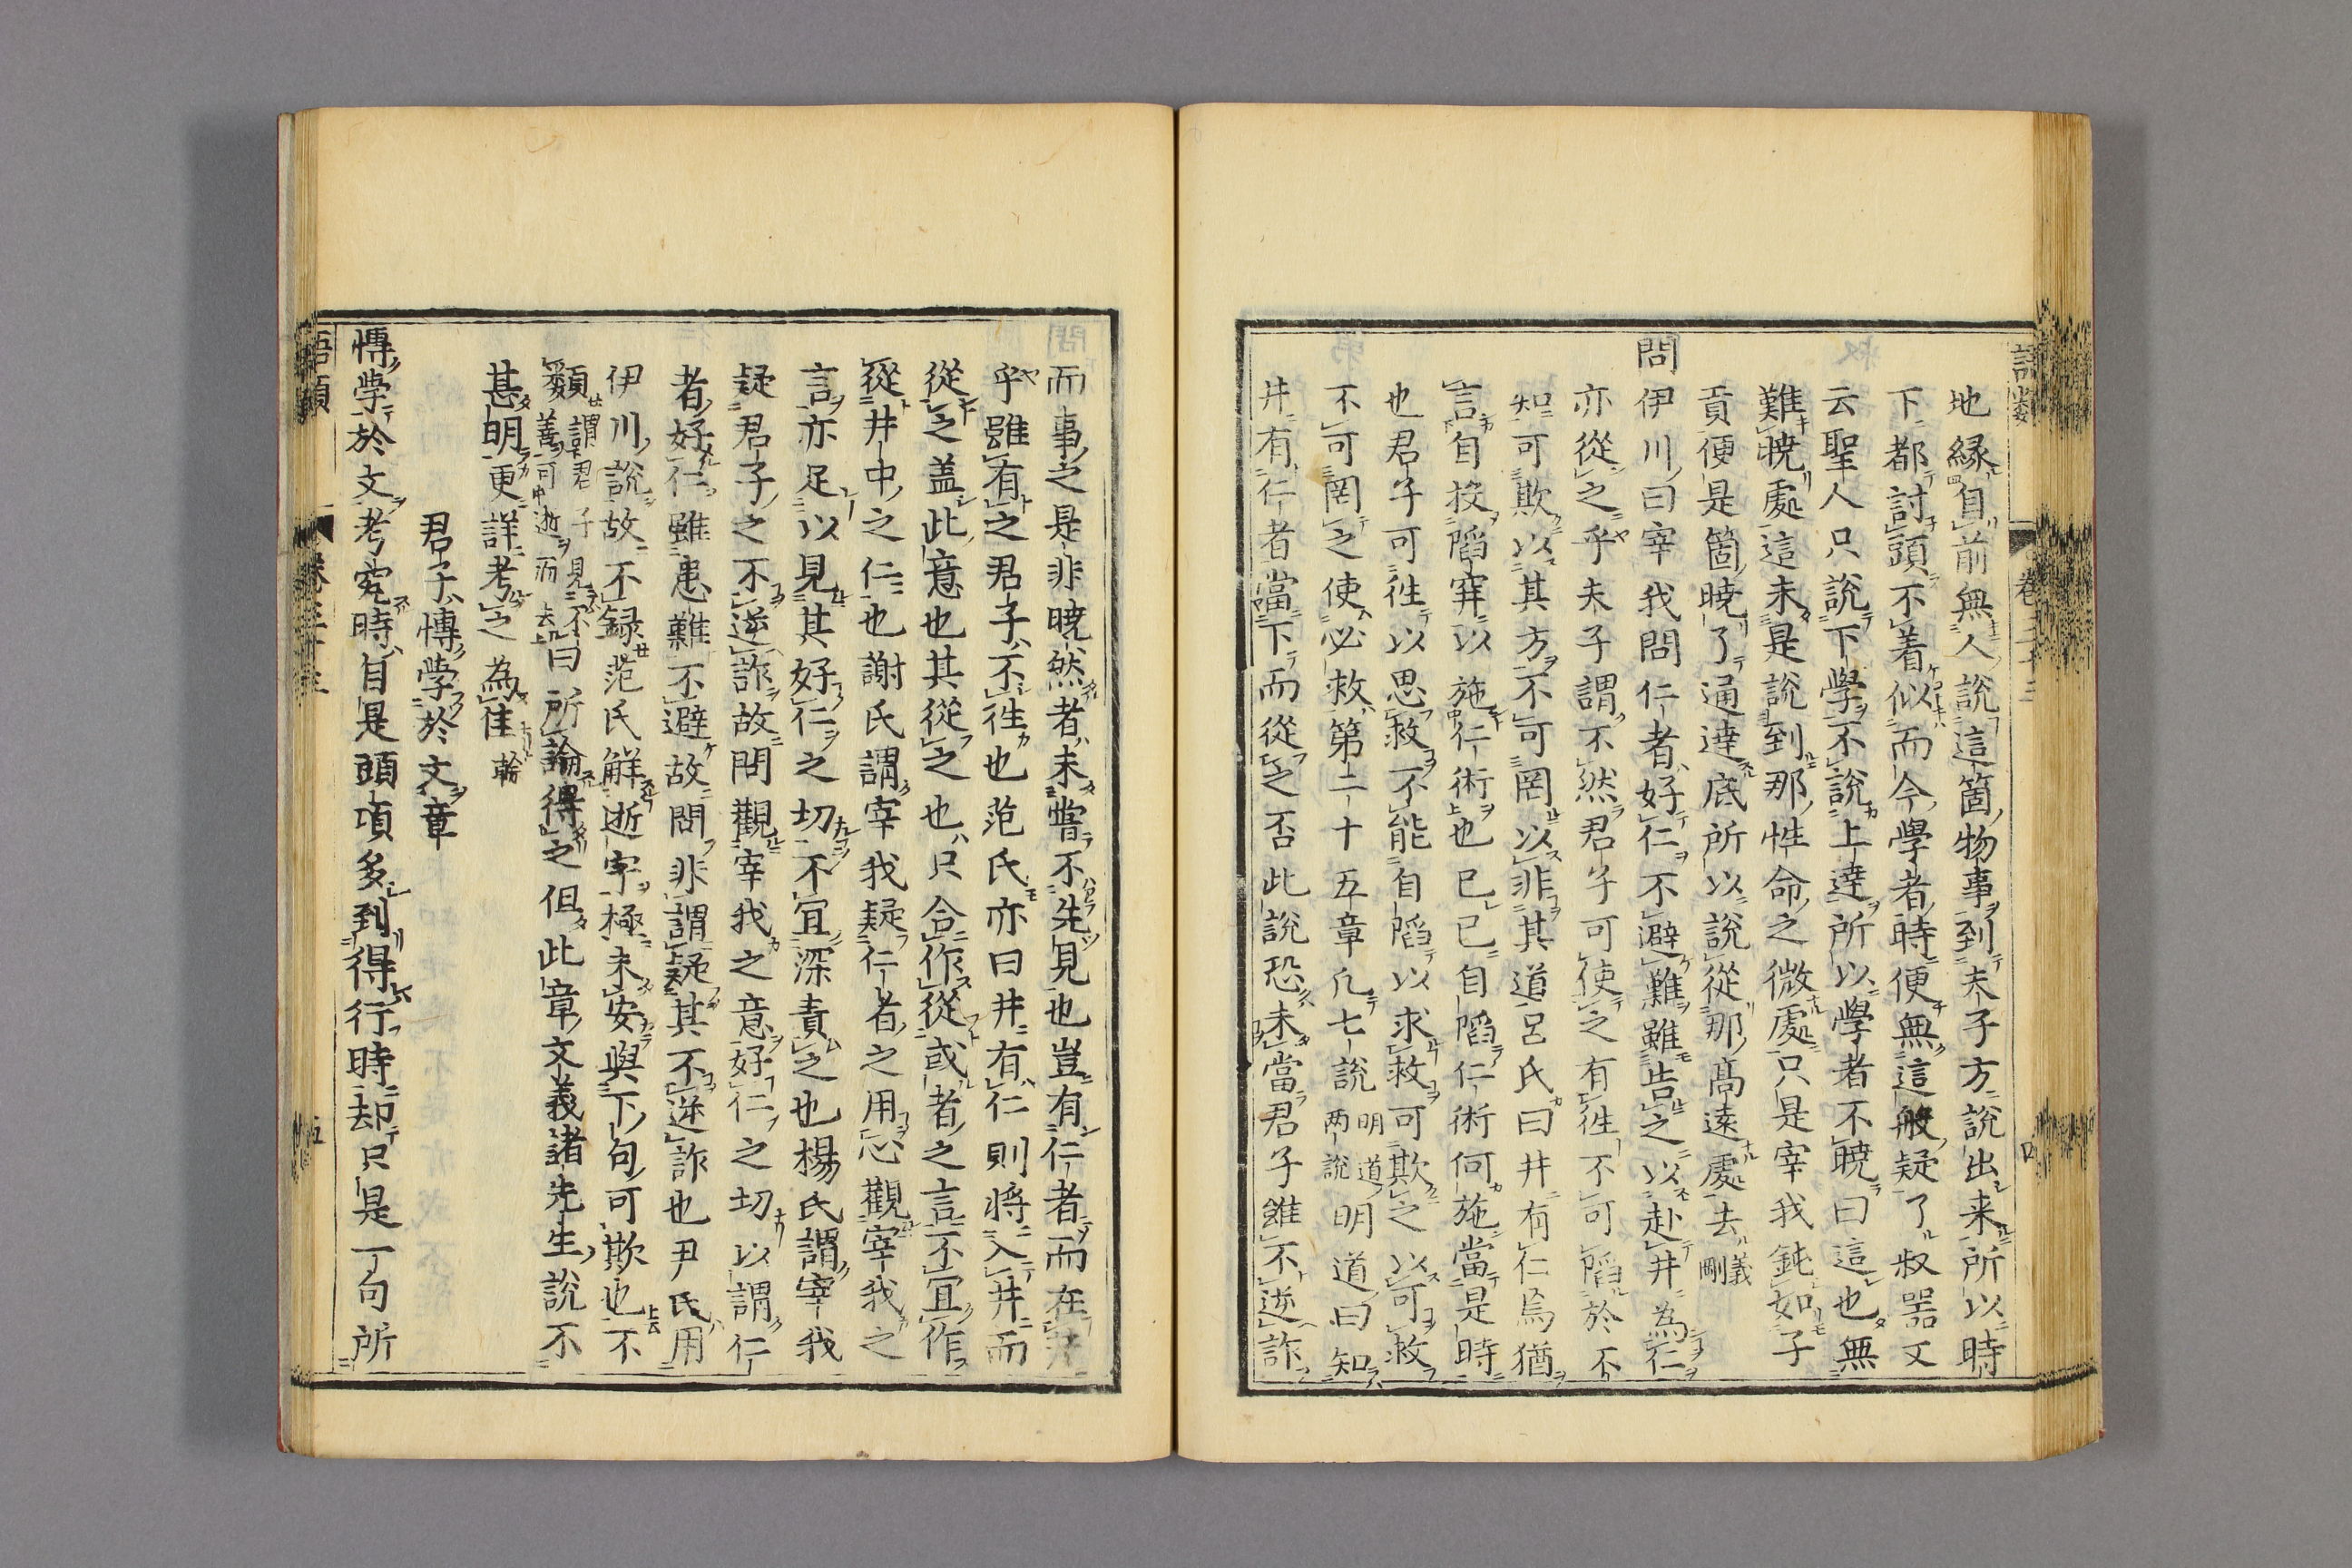 地縁自前無人說這箇物事到夫子方說出来所以時
下都討頭不着似而今學者時便無這般疑了叔噐又
云聖人只說下學不說上達所以學者不曉曰這也無
難曉處這未是說到那性命之微處只是宰我鈍如子
貢便是箇曉了通達底所以說從那髙遠處去義剛
問伊川曰宰我問仁者好仁不避難雖告之以赴井為仁
亦從之乎夫子謂不然君子可使之有徃不可䧟於不
知可欺以其方不可罔以非其道呂氏曰井有仁焉猶
言自投䧟穽以施仁術也已已自䧟仁術何施當是時
也君子可徃以思救不能自䧟以求救可欺之以可救
不可罔之使必救第二十五章凡七說明道兩說明道曰知
井有仁者當下而從之否此說恐未當君子雖不逆詐
而事之是非曉然者未嘗不先見也豈有仁者而在井
乎雖有之君子不徃也范氏亦曰井有仁則將入井而
從之盖此意也其從之也只合作從或者之言不宜作
從井中之仁也謝氏謂宰我疑仁者之用心觀宰我之
言亦足以見其好仁之切不宜深責之也楊氏謂宰我
疑君子之不逆詐故問觀宰我之意好仁之切以謂仁
者好仁雖患難不避故問非謂疑其不逆詐也尹氏用
伊川說故不録范氏解逝字極未安與下句可欺也不
類謂君子見不善可逝而去曰所論得之但此章文義諸先生說不
甚明更詳考之為佳榦
君子博學於文章
博學於文考究時自是頭項多到得行時却只是一句所
語類
卷三十三
四
五